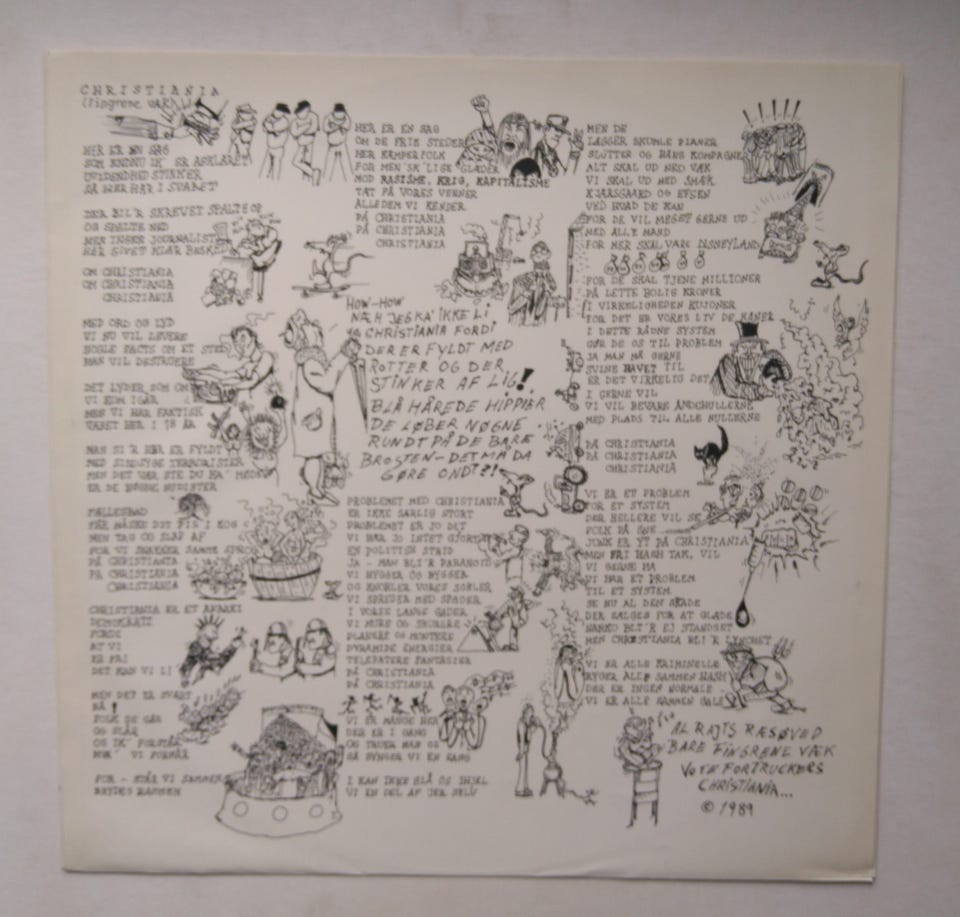 CHRISTIANIA
(Fingrene VÆK)
HER ER EN SAG
SOM ENDNU IK' ER AFKLARET
UVIDENHED STINKER
SÅ HER HAR I SVARET
DER BLI'R SKREVET SPALTE OP
OG SPALTE NED
MEN INGEN JOURNALIST
HAR GIVET KLAR BESKED
OM CHRISTIANIA
OM CHRISTIANIA
CHRISTIANIA
MED ORD OG LYD
VI NU VIL LEVERE
NOGLE FACTS OM ET STED
MAN VIL DESTRUERE
DET LYDER SOM OM
VI KOM IGÅR
MEN VI HAR FAKTISK
VÆRET HER I 18 ÅR
MAN SI'R HER ER FYLDT
MED SINDSYGE TERRORISTER
MEN DET VÆRSTE DU KA' MØDE
ER DE NØGNE NUDISTER
FÆLLESBAD
FÅR MÅSKE DIT PIS I KOG
MEN TAG OG SLAP AF
FOR VI SNAKKER SAMME SPROG
PÅ CHRISTIANIA
PÅ CHRISTIANIA
CHRISTIANIA
CHRISTIANIA ER ET ANARKI
DEMOKRATI
FORDI
AT VI
ER FRI
DET KAN VI LI'
MEN DET ER SVÆRT
NÅ!
FOLK DE GÅR
OG SLÅR
OG IK' FORSTÅR
NOK VI FORMÅR
FOR - STÅR VI SAMMEN
BRYDES RAMMEN
HER ER EN SAG
OM DE FRIE STEDER
HER KÆMPER FOLK
FOR MEN'SK'LIGE GLÆDER
MOD RASISME, KRIG, KAPITALISME
TÆT PÅ VORES VENNER
ALLE DEM VI KENDER
PÅ CHRISTIANIA
PÅ CHRISTIANIA
CHRISTIANIA
HOW-HOW
NÆH JEG KA' IKKE LI
CHRISTIANIA FORDI
DER ER FYLDT MED
ROTTER OG DER
STINKER AF LIG!
BLÅ HÅREDE HIPPIER
DE LØBER NØGNE
RUNDT PÅ DE BARE
BROSTEN - DET MÅ DA
GØRE ONDT?!
PROBLEMET MED CHRISTIANIA
ER IKKE SÆRLIG STORT
PROBLEMET ER JO DET
VI HAR JO INTET GJORT
EN POLITISK STRID
JA - MAN BLI'R PARANOID
VI HYGGER OG BYGGER
OG KNOKLER VORES SOKLER
VI SPREDER MED SPADER
I VORES LANGE GADER
VI MURE OG SKURERE
PLANERE OG MONTERE
PYRAMIDE ENERGIER
TELEPATERE FANTASIER
PÅ CHRISTIANIA
PÅ CHRISTIANIA
VI ER MANGE HER
DER ER I GANG
OG TRUER MAN OS
SÅ SYNGER VI EN SANG
I KAN IKKE SLÅ OS IHJEL
VI EN DEL AF JER SELV
MEN DE
LÆGGER SKUMLE PLANER
SLÜTER OG HANS KOMPAGNE
ALT SKAL UD NED VÆK
VI SKAL UD NED SMÆK
KJÆRSGAARD OG EFSEN
VED HVAD DE KAN
FOR DE VIL MEGET GERNE UD
MED ALLE MAND
FOR HER SKAL VÆRE DISNEYLAND
FOR DE SKAL TJENE MILLIONER
PÅ LETTE BOLIG KRONER
I VIRKELIGHEDEN KUJONER
FOR DET ER VORES LIV DE KANER
I DETTE RÅDNE SYSTEM
GØR DE OS TIL PROBLEM
JA MAN MÅ GERNE
SVINE HAVET TIL
ER DET VIRKELIG DET
I GERNE VIL
VI VIL BEVARE ÅNDEHULLERNE
MED PLADS TIL ALLE NULLERNE
PÅ CHRISTIANIA
PÅ CHRISTIANIA
CHRISTIANIA
VI ER ET PROBLEM
FOR ET SYSTEM
DER HELLERE VIL SE
FOLK PÅ SNE
JUNK ER YT PÅ CHRISTIANIA
MEN FRI HASH TAK, VIL
VI GERNE HA
VI HAR ET PROBLEM
TIL ET SYSTEM
SE NU AL DEN SKADE
DER SÆLGES FOR AT GLÆDE
NARKO BLI'R EJ STANDSET
MEN CHRISTIANIA BLI'R LYNCHET
VI ER ALLE KRIMINELLE
RYGER ALLE SAMMEN HASH
DER ER INGEN NORMALE
VI ER ALLE SAMMEN GALE
AL RAJTS RÆSØVED
BARE FINGRENE VÆK
VOTE FOR TRUCKERS
CHRISTIANIA...
© 1989